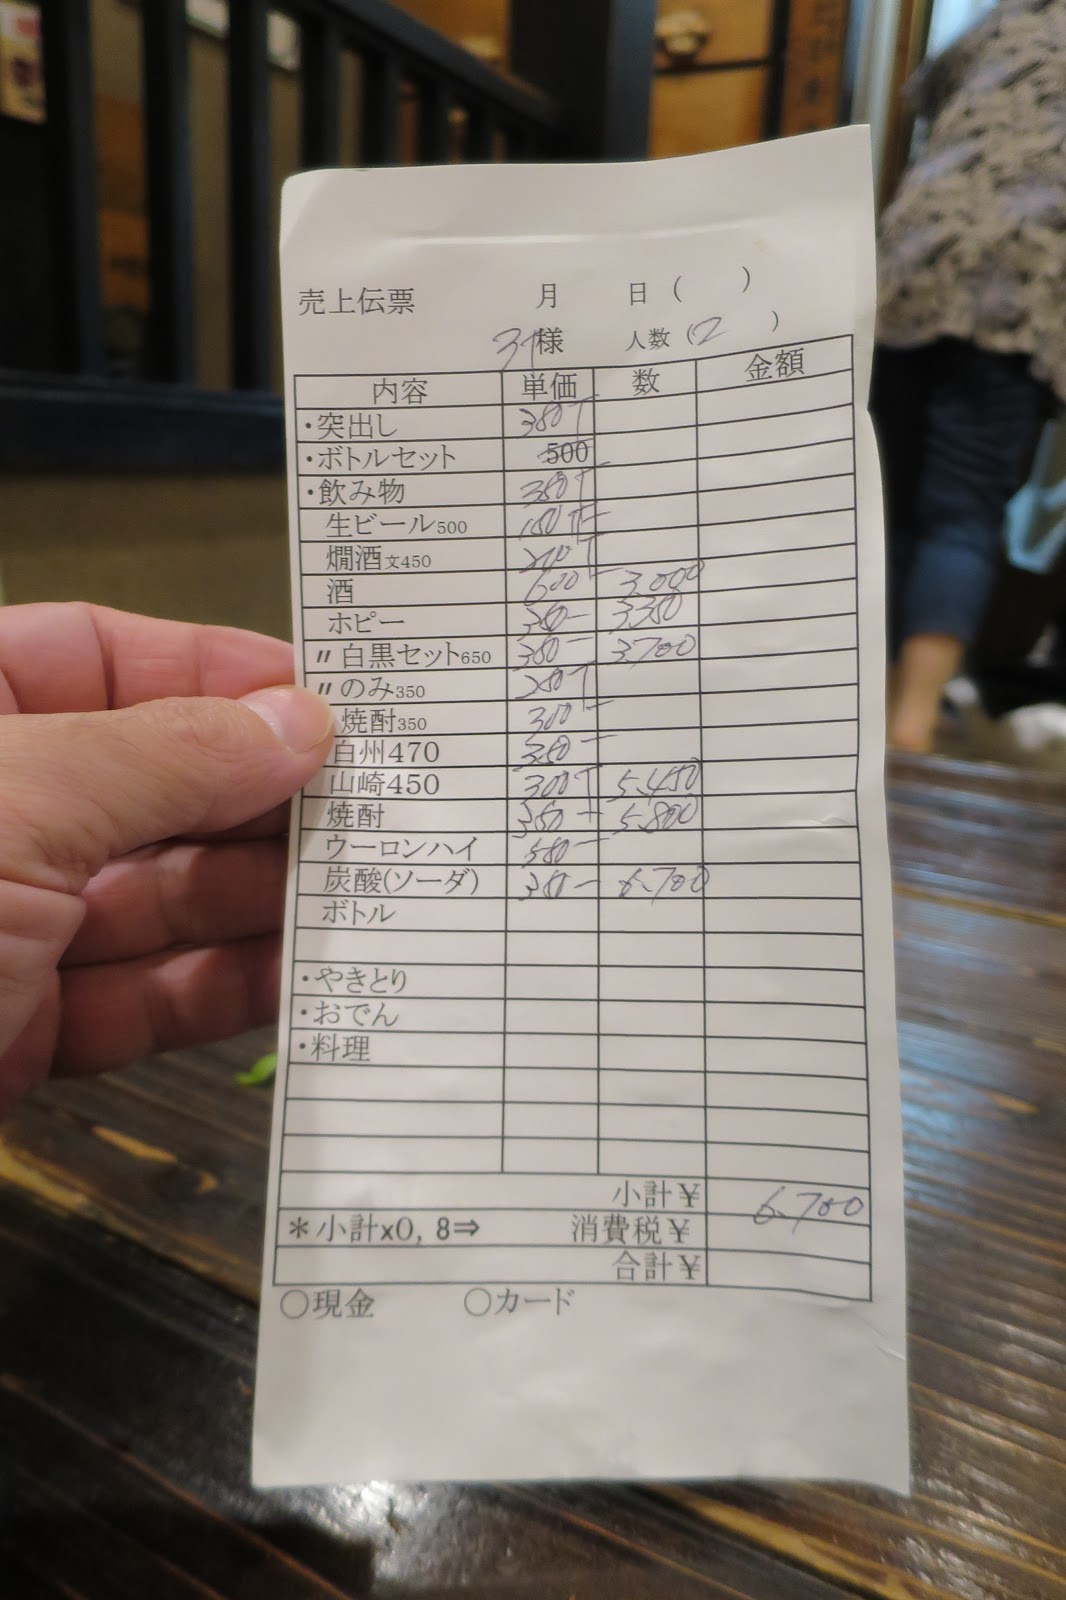 売上伝票 月 日 ( )
様 人数 (2 )
内容 単価 数 金額
・突出し 380
・ボトルセット 500
・飲み物 350
生ビール500
燗酒文450
酒 600 3.000
ホピー 350 3350
〃白黒セット650 350 3.700
〃のみ350 250
焼酎350 300
白州470 350
山崎450 300 5.450
焼酎 350 5.800
ウーロンハイ
炭酸(ソーダ) 350 6.700
ボトル
・やきとり
・おでん
・料理
小計¥ 6.700
＊小計x0, 8⇒ 消費税¥
合計¥
○現金 ○カード